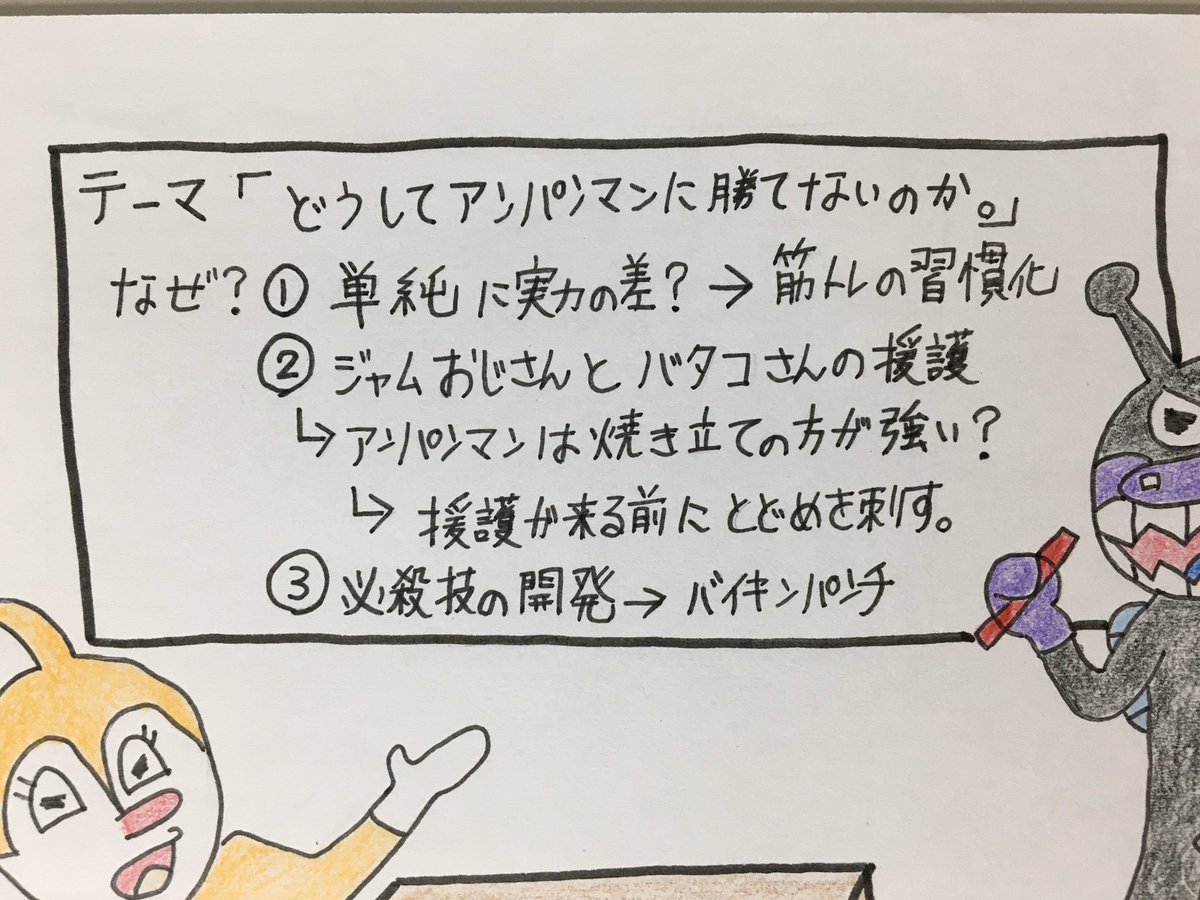 テーマ「どうしてアンパンマンに勝てないのか。」
なぜ?① 単純に実力の差?→筋トレの習慣化
② ジャムおじさんとバタコさんの援護
↳アンパンマンは焼き立ての方が強い?
↳援護が来る前にとどめを刺す。
③ 必殺技の開発→バイキンパンチ